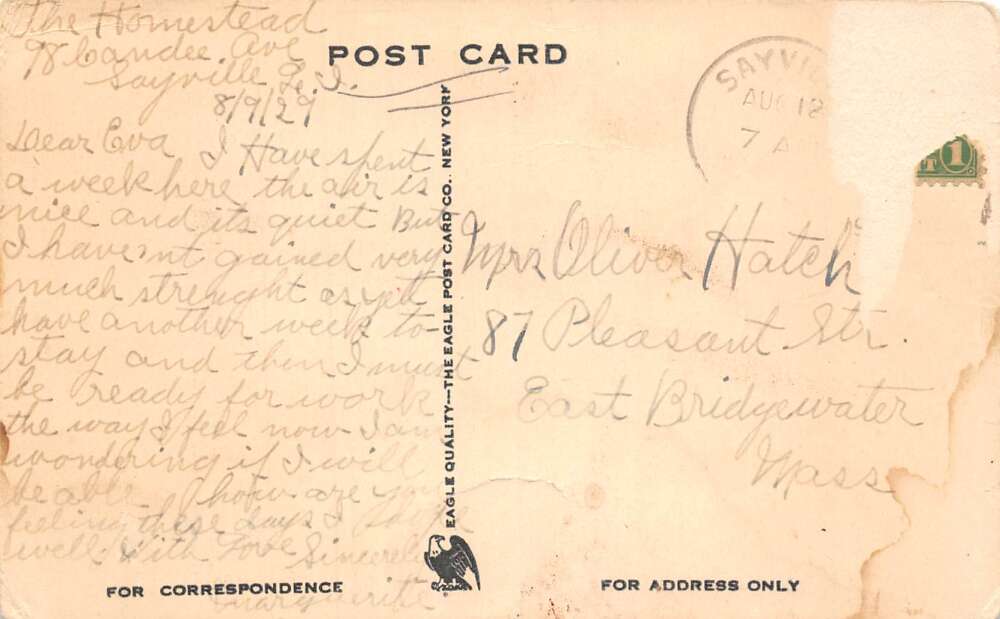 The Homestead
98 Candee Ave
Sayville L. I.
8/9/29
Dear Eva I Have spent
a week here the air is
nice and its quiet But
I have'nt gained very
much strenght as yet
have another week to
stay and then I must
be ready for work
the way I feel now I am
wondering if I will
be able how are you
feeling these days I hope
well. With Love Sincerely
Marguerite
POST CARD
SAYVIL
AUG 12
7 A
1
EAGLE QUALITY—THE EAGLE POST CARD CO., NEW YORK
Mrs Oliver Hatch
87 Pleasant Str.
East Bridgewater
Mass
FOR CORRESPONDENCE
FOR ADDRESS ONLY